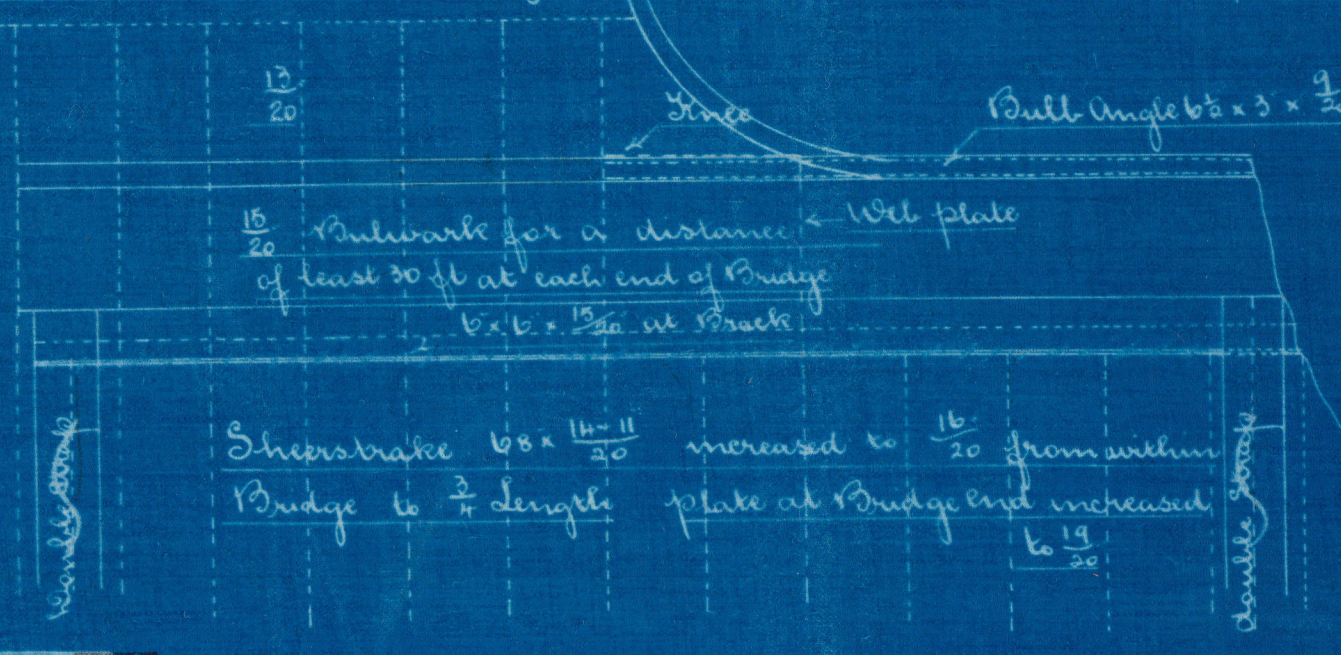 13/20
Knee
Bulb Angle 6½ × 3 ×
15/20 Bulwark for a distance
Web plate
of least 30 ft at each end of Bridge
6 × 6 × 15/20 at Brack
Sheerstrake 68 × 14-11/20 increased to 16/20 from within
Bridge to 3/4 Length plate at Bridge end increased
to 19/20
Double Strap
Double Straps